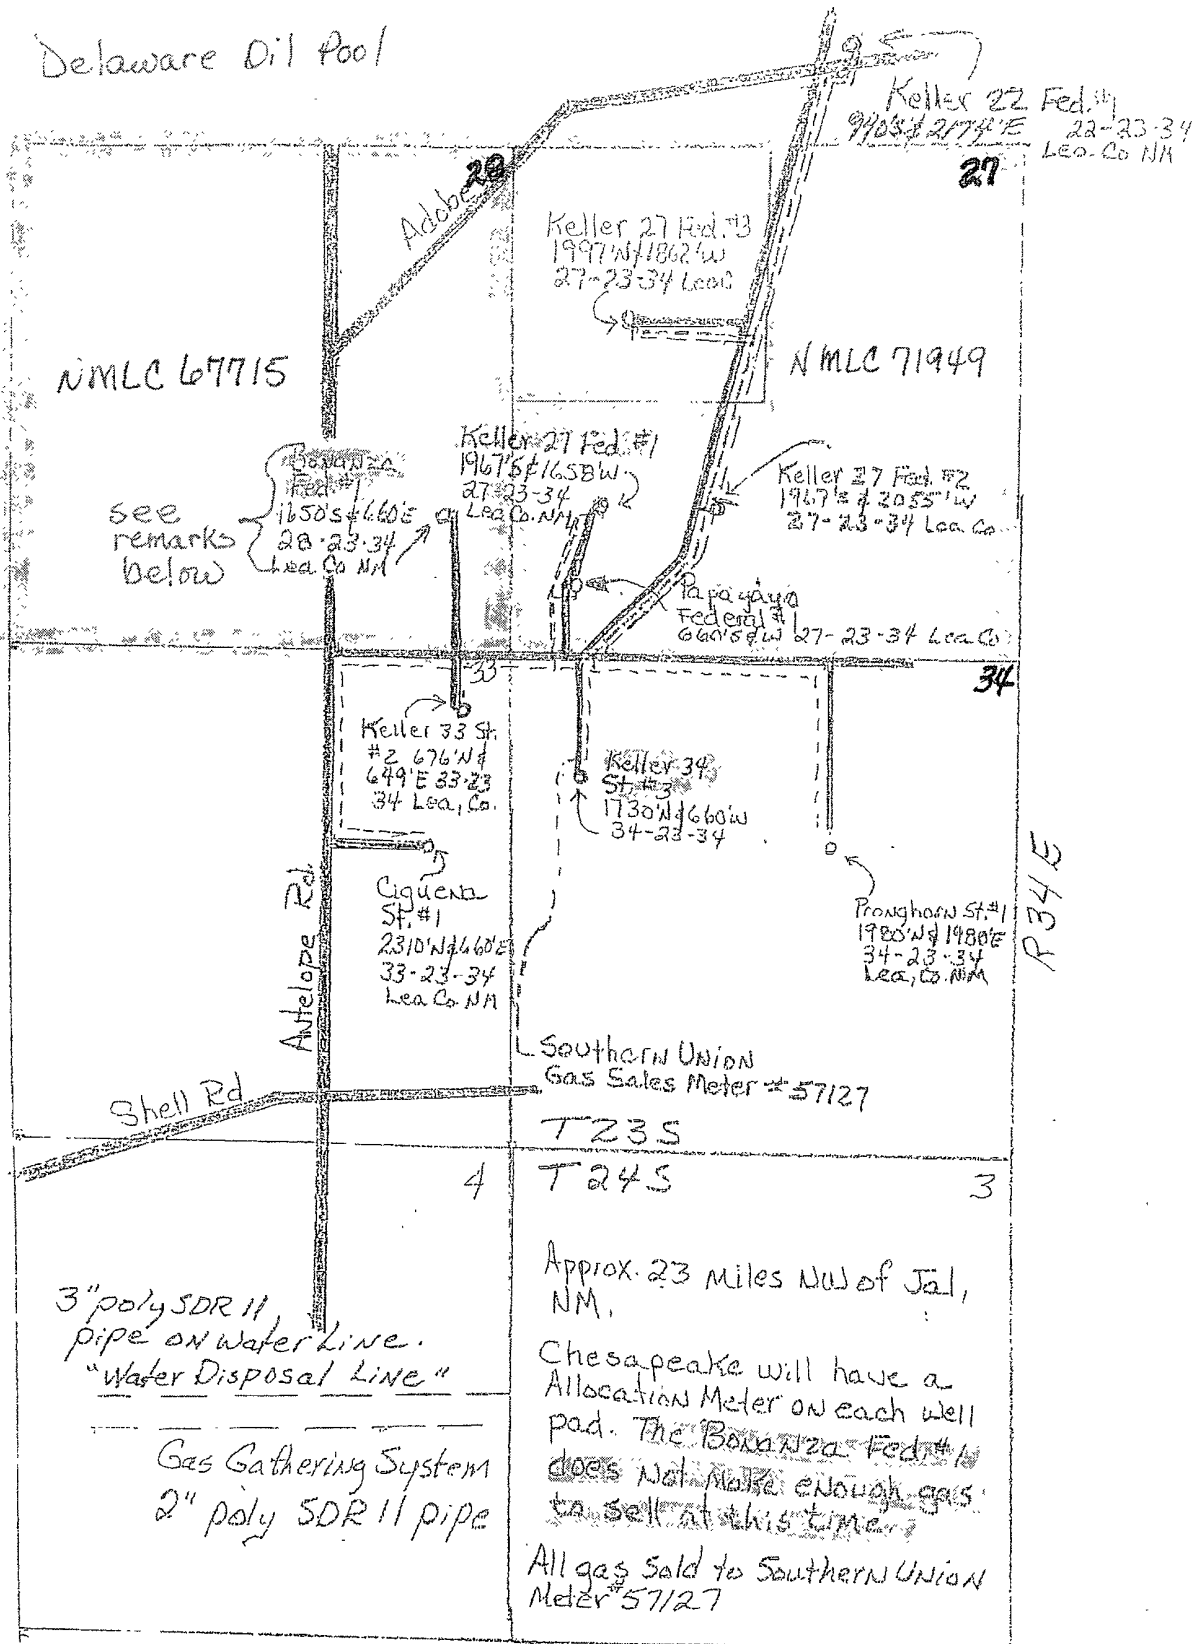 Delaware Oil Pool
Keller 22 Fed.#1
940'S & 2174'E 22-23-34
Lea Co NM
28
27
Adobe
Keller 27 Fed.#3
1997'N & 1862'W
27-23-34 Lea C
NMLC 67715
NMLC 71949
Bonanza
Fed.#1
1650'S & 660'E
28-23-34
Lea Co NM
see
remarks
below
Keller 27 Fed #1
1967'S & 1658'W
27-23-34
Lea Co. NM
Keller 27 Fed. #2
1967'S & 2055'W
27-23-34 Lea Co
Papagayo
Federal #1
660'S & W 27-23-34 Lea Co
33
34
Keller 33 St.
#2 676'N &
649'E 33-23
34 Lea, Co.
Keller 34
St. #3
1730'N & 660'W
34-23-34
Ciguena
St. #1
2310'N & 660'E
33-23-34
Lea Co NM
Pronghorn St.#1
1980'N & 1980'E
34-23-34
Lea, Co. NM
R 34 E
Antelope Rd.
Shell Rd
Southern Union
Gas Sales Meter #57127
T 23 S
4 T 24 S 3
3" poly SDR 11
pipe on Water Line.
"Water Disposal Line"
Gas Gathering System
2" poly SDR 11 pipe
Approx. 23 Miles NW of Jal,
NM.
Chesapeake will have a
Allocation Meter on each well
pad. The Bonanza Fed #1
does Not Make enough gas
to sell at this time.
All gas Sold to Southern Union
Meter #57127